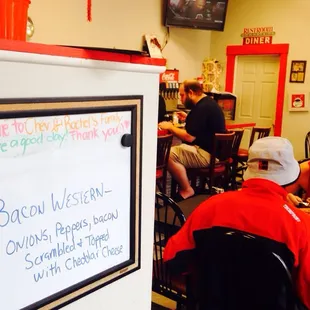 to Cher & Rachel's family
e a good day! Thank you!
Bacon Western-
onions, Peppers, bacon
Scrambled & Topped
with Cheddar Cheese
DINER